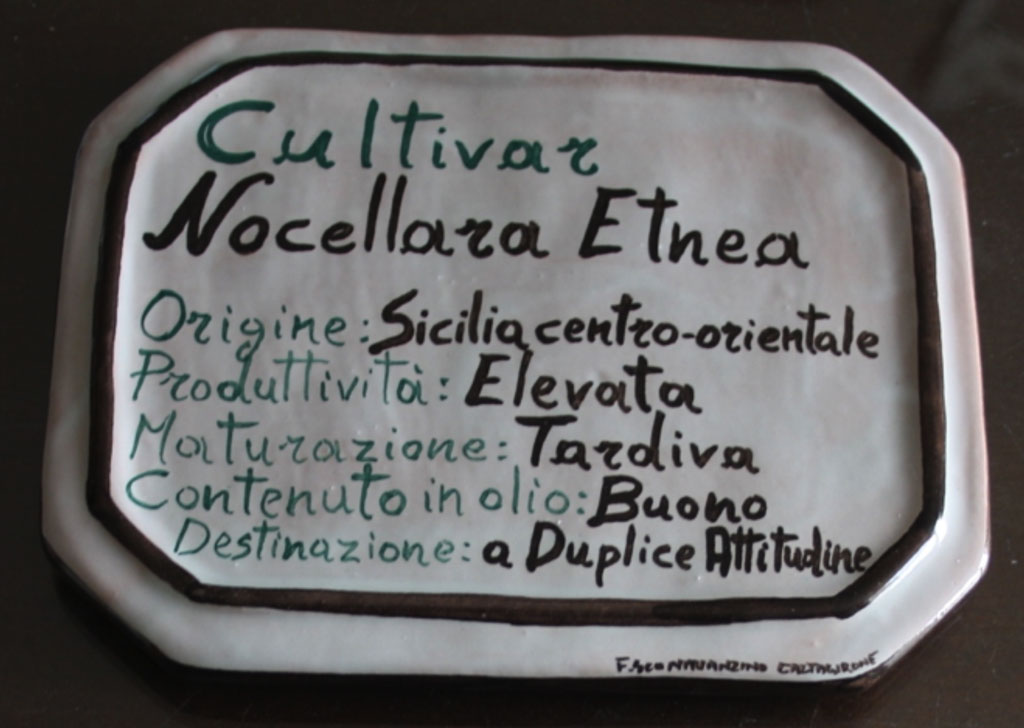 Cultivar
Nocellara Etnea
Origine: Sicilia centro-orientale
Produttività: Elevata
Maturazione: Tardiva
Contenuto in olio: Buono
Destinazione: a Duplice Attitudine
CALTAGIRONE